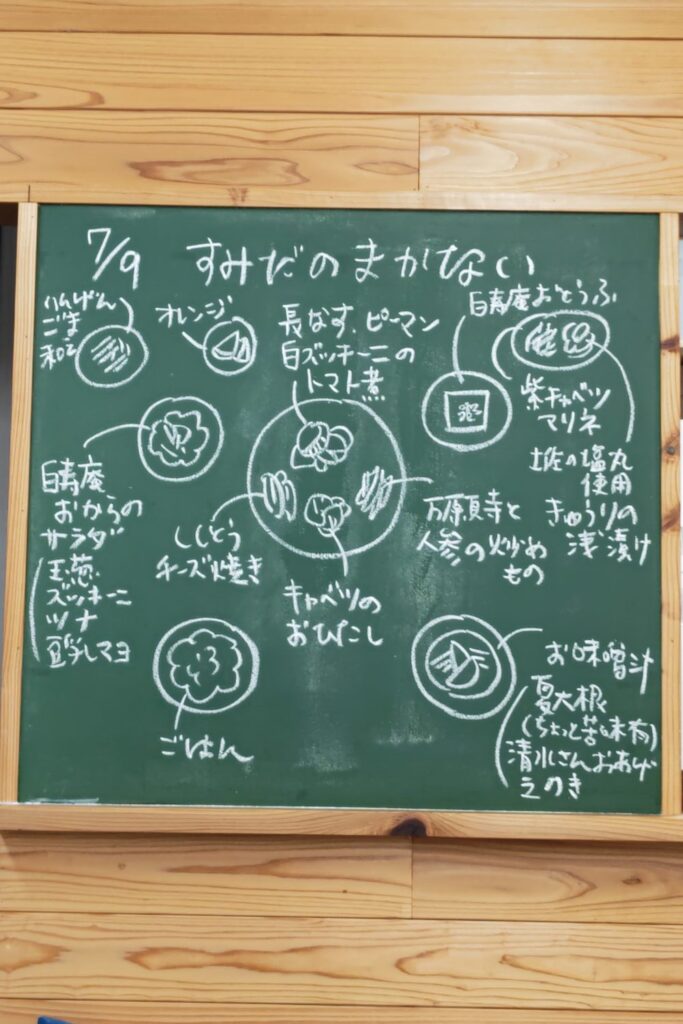 7/9 すみだのまかない
いんげん
ごま
和え
オレンジ
長なす、ピーマン
白ズッキーニの
トマト煮
白寿庵おとうふ
紫キャベツ
マリネ
土佐の塩丸
使用
きゅうりの
浅漬け
白寿庵
おからの
サラダ
玉葱
ズッキーニ
ツナ
豆乳マヨ
ししとう
チーズ焼き
キャベツの
おひたし
万願寺と
人参の炒め
もの
ごはん
お味噌汁
夏大根
(ちょっと苦味有)
清水さんおあげ
えのき